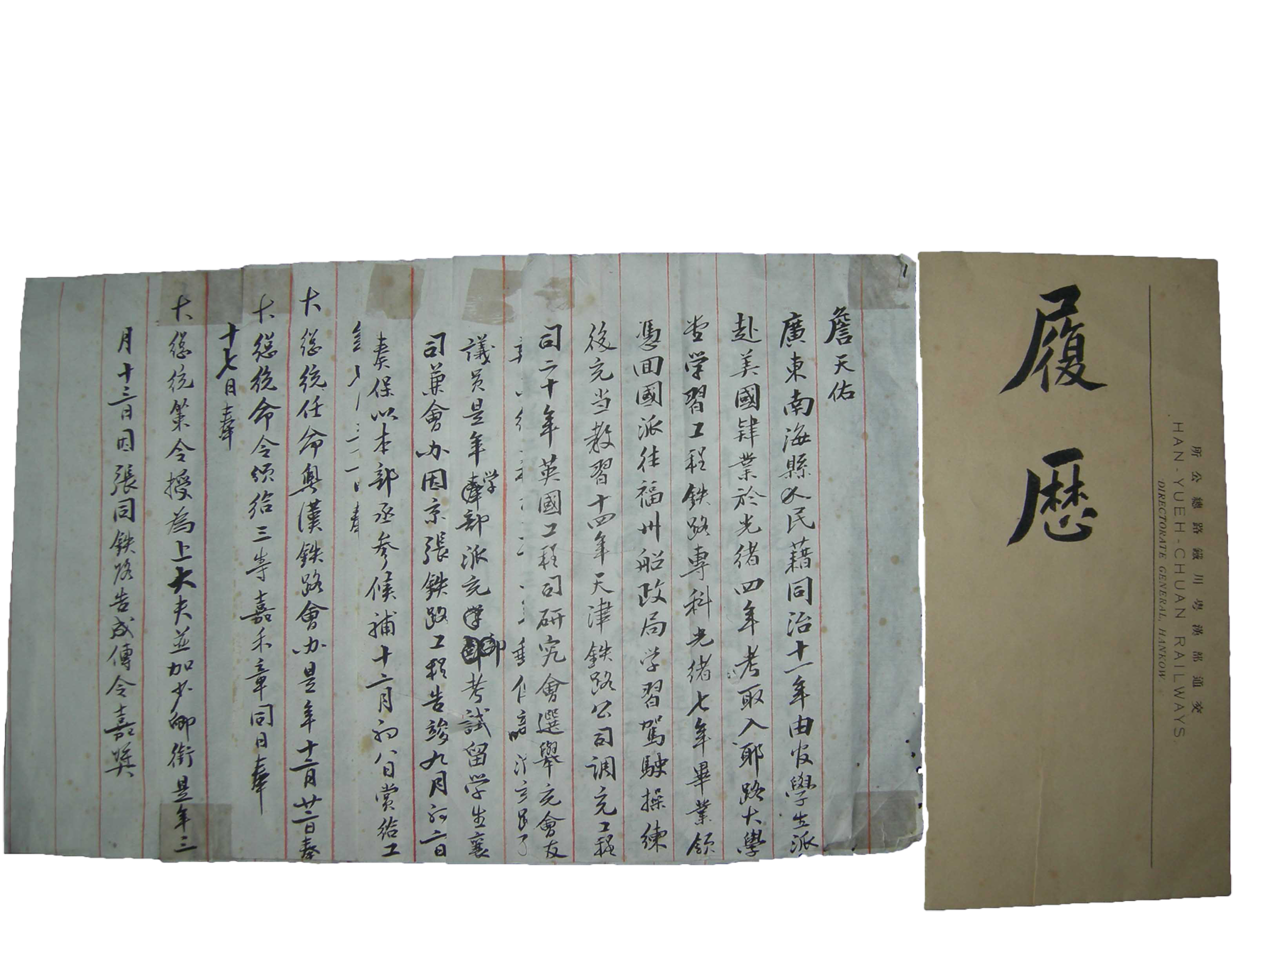 履歷
交通部漢粵川鐵路總公所
HAN-YUEH-CHUAN RAILWAYS
DIRECTORATE GENERAL, HANKOW
詹天佑
廣東南海縣人民藉同治十一年由官學生派
赴美國肄業於光緒四年考取入耶路大學
堂学習工程鉄路專科光緒七年畢業領
憑回國派往福州船政局学習駕駛操練
後充当教習十四年天津鉄路公司調充工程
司二十年英國工程司研究會選舉充會友
議員是年學部派充考試留学生襄
司兼會办因京張鉄路工程告竣九月初二日
奏保以本部丞参候補十二月初八日賞給工
大總統任命粤漢鉄路會办是年十二月廿二日奉
大總統命令頒给三等嘉禾章同日奉
十七日奉
大總統策令授為上大夫並加少卿銜是年三
月十三日因張同鉄路告成傳令嘉奬